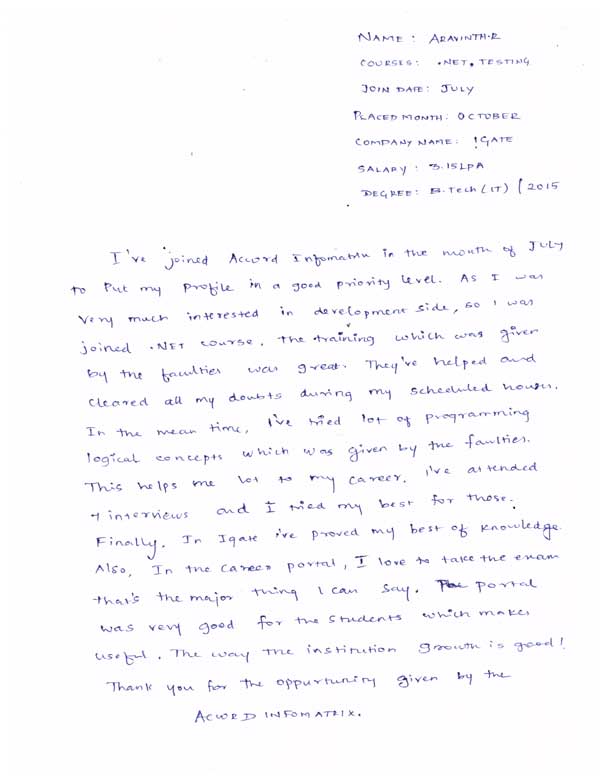 NAME: ARAVINTH.R
COURSES: .NET, TESTING
JOIN DATE: JULY
PLACED MONTH: OCTOBER
COMPANY NAME: IGATE
SALARY: 3.15LPA
DEGREE: B.Tech(IT) / 2015
I've joined Accord Infomatrix in the month of JULY
to Put my Profile in a good priority level. As I was
very much interested in development side, so I was
joined .NET course. The training which was given
by the faculties was great. They've helped and
cleared all my doubts during my scheduled hours.
In the mean time, I've tried lot of programming
logical concepts which was given by the faulties.
This helps me lot to my career. I've attended
7 interviews and I tried my best for those.
Finally, In Igate I've proved my best of knowledge.
Also, In the career portal, I love to take the exam
that's the major thing I can say. The portal
was very good for the students which makes
useful. The way the institution growth is good!
Thank you for the oppurtunity given by the
ACCORD INFOMATRIX.